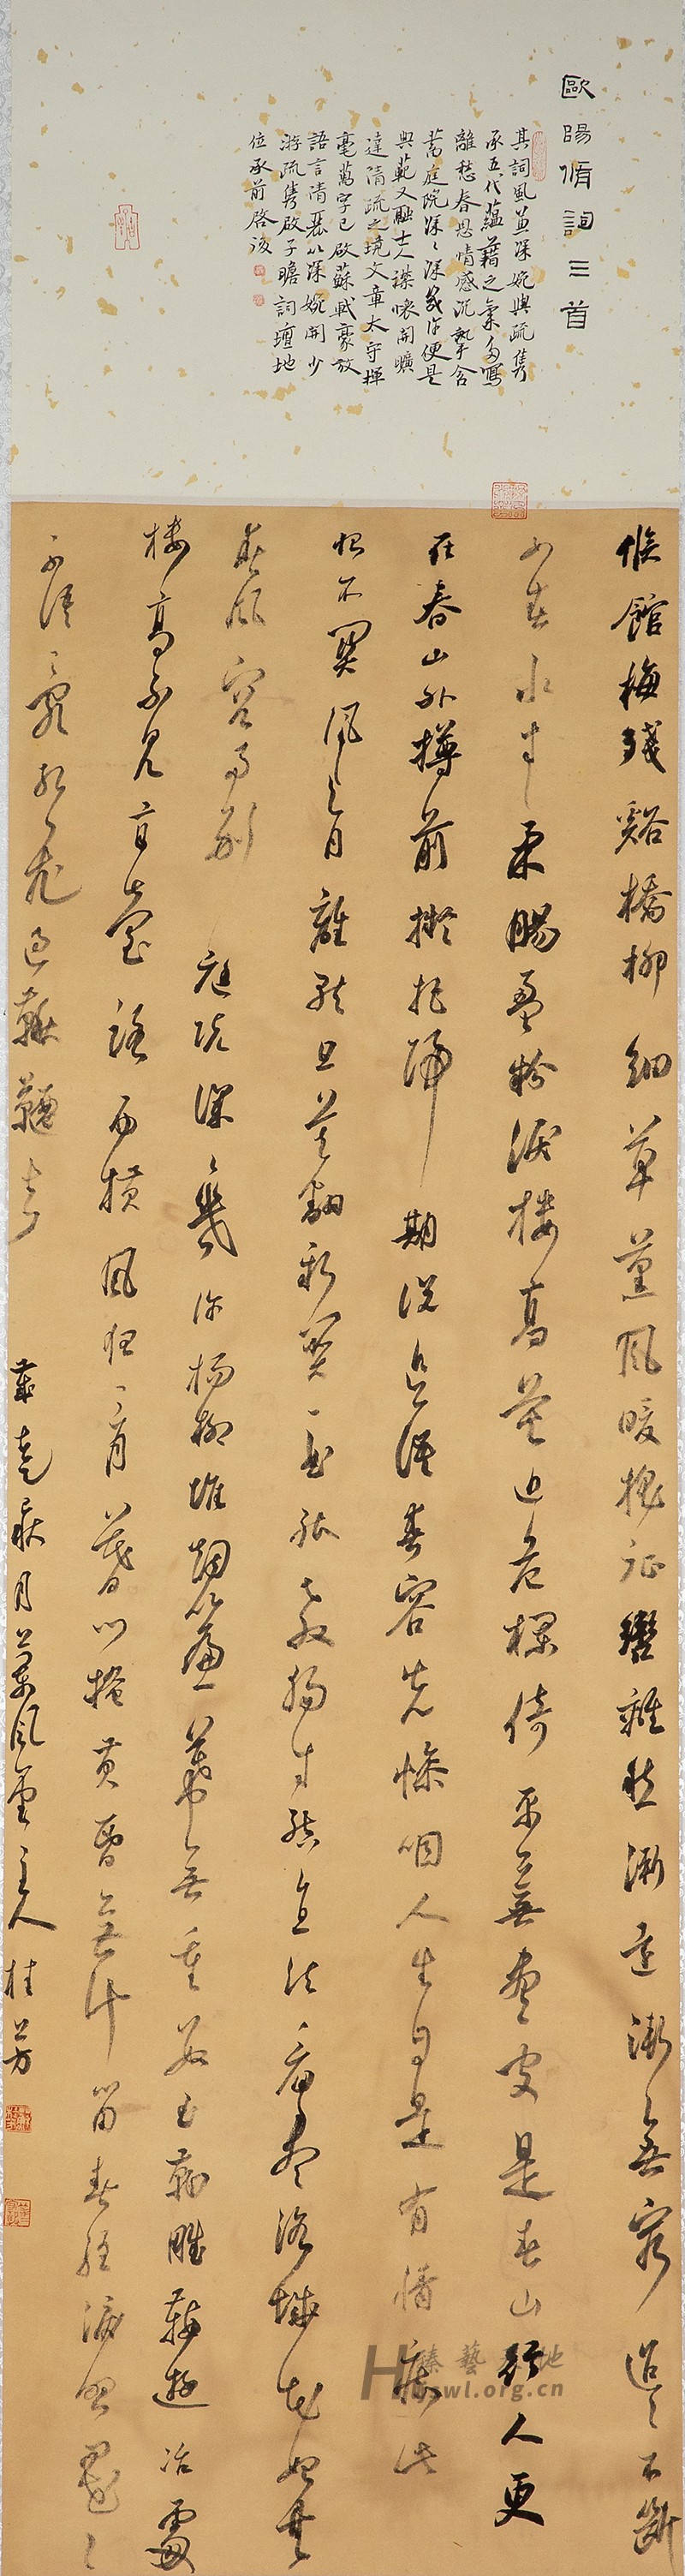 歐陽脩詞三首
其詞風兼深婉與疏雋
承五代蘊藉之氣多寫
離愁春思情感沉摯含
蓄庭院深〻深幾許便是
典範又融士人襟懷開曠
達清疏之境文章太守揮
毫萬字已啟蘇軾豪放
語言清麗以深婉開少
游疏雋啟子瞻詞壇地
位承前啓後
候館梅殘谿橋柳細草薰風暖搖征轡離愁漸遠漸無窮迢〻不斷
如春水寸〻柔腸盈〻粉淚樓高莫近危欄倚平蕪盡處是春山行人更
在春山外樽前擬把歸期說欲語春容先慘咽人生自是有情癡此
恨不關風與月離歌且莫翻新闋一曲能教腸寸結直須看盡洛城花始共
春風容易別 庭院深〻幾許楊柳堆煙簾幕無重數玉勒雕鞍遊冶處
樓高不見章臺路雨橫風狂三月暮門掩黃昏無計留春住淚眼問花〻
不語亂紅飛過鞦韆去
月萬風堂主人桂芳